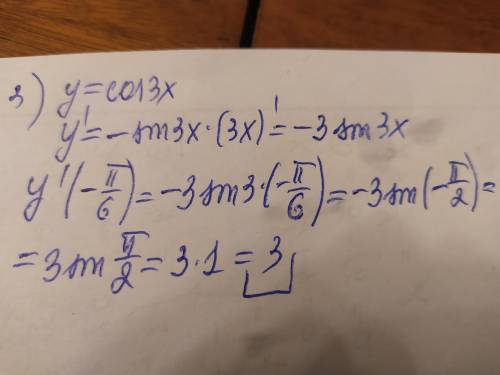 3) y = cos3x
y' = -sin3x·(3x)' = -3sin3x
y'(-π/6) = -3sin3·(-π/6) = -3sin(-π/2) =
= 3sin π/2 = 3·1 = 3